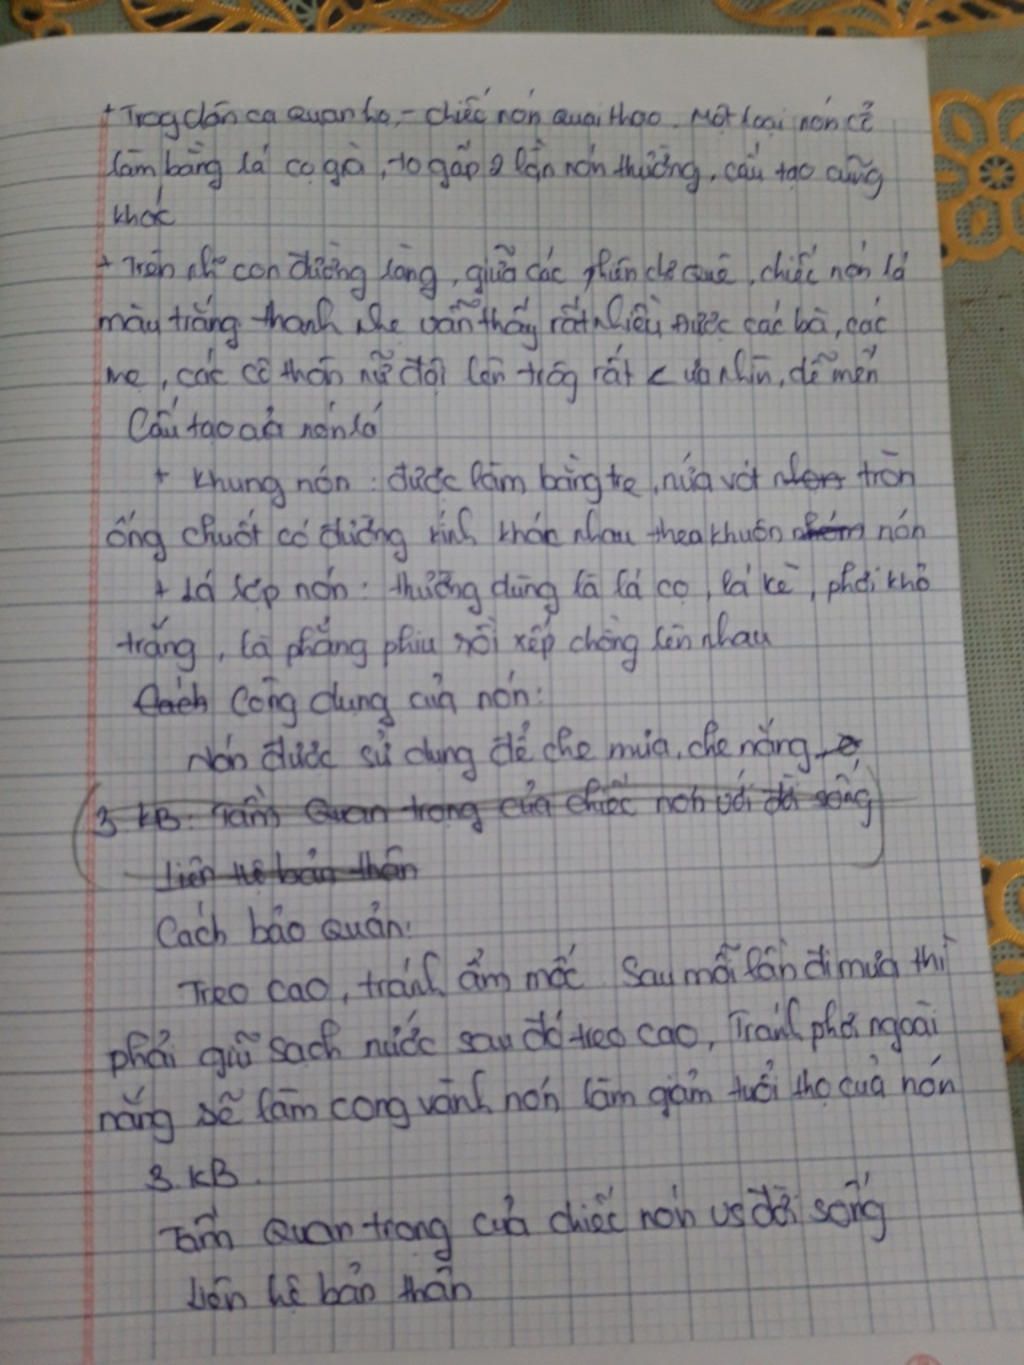 + Trog dân ca quan họ, - chiếc nón quai thao. Một loại nón cổ
làm bằng lá cọ già, to gấp 2 lần nón thường, cấu tạo cũng
khác
+ Trên con đường làng, giữa các phiên chợ quê, chiếc nón lá
màu trắng thanh nhẹ vẫn thấy rất nhiều được các bà, các
mẹ, các cô thôn nữ đội lên trôg rất ưa nhìn, dễ mến
Cấu tạo của nón lá
+ Khung nón: được làm bằng tre, nứa vót tròn
ống chuốt có đường kính khác nhau theo khuôn nón
+ Lá lợp nón: thường dùng là lá cọ, lá kè, phơi khô
trắng, là phẳng phiu rồi xếp chồng lên nhau
Cách Công dụng của nón:
Nón được sử dụng để che mưa, che nắng
3 KB: Tầm quan trọng của chiếc nón với đời sống
Liên hệ bản thân
Cách bảo quản:
Treo cao, tránh ẩm mốc. Sau mỗi lần đi mưa thì
phải giũ sạch nước sau đó treo cao, Tránh phơi ngoài
nắng sẽ làm cong vành nón làm giảm tuổi thọ của nón
3. KB.
Tầm quan trọng của chiếc nón vs đời sống
Liên hệ bản thân